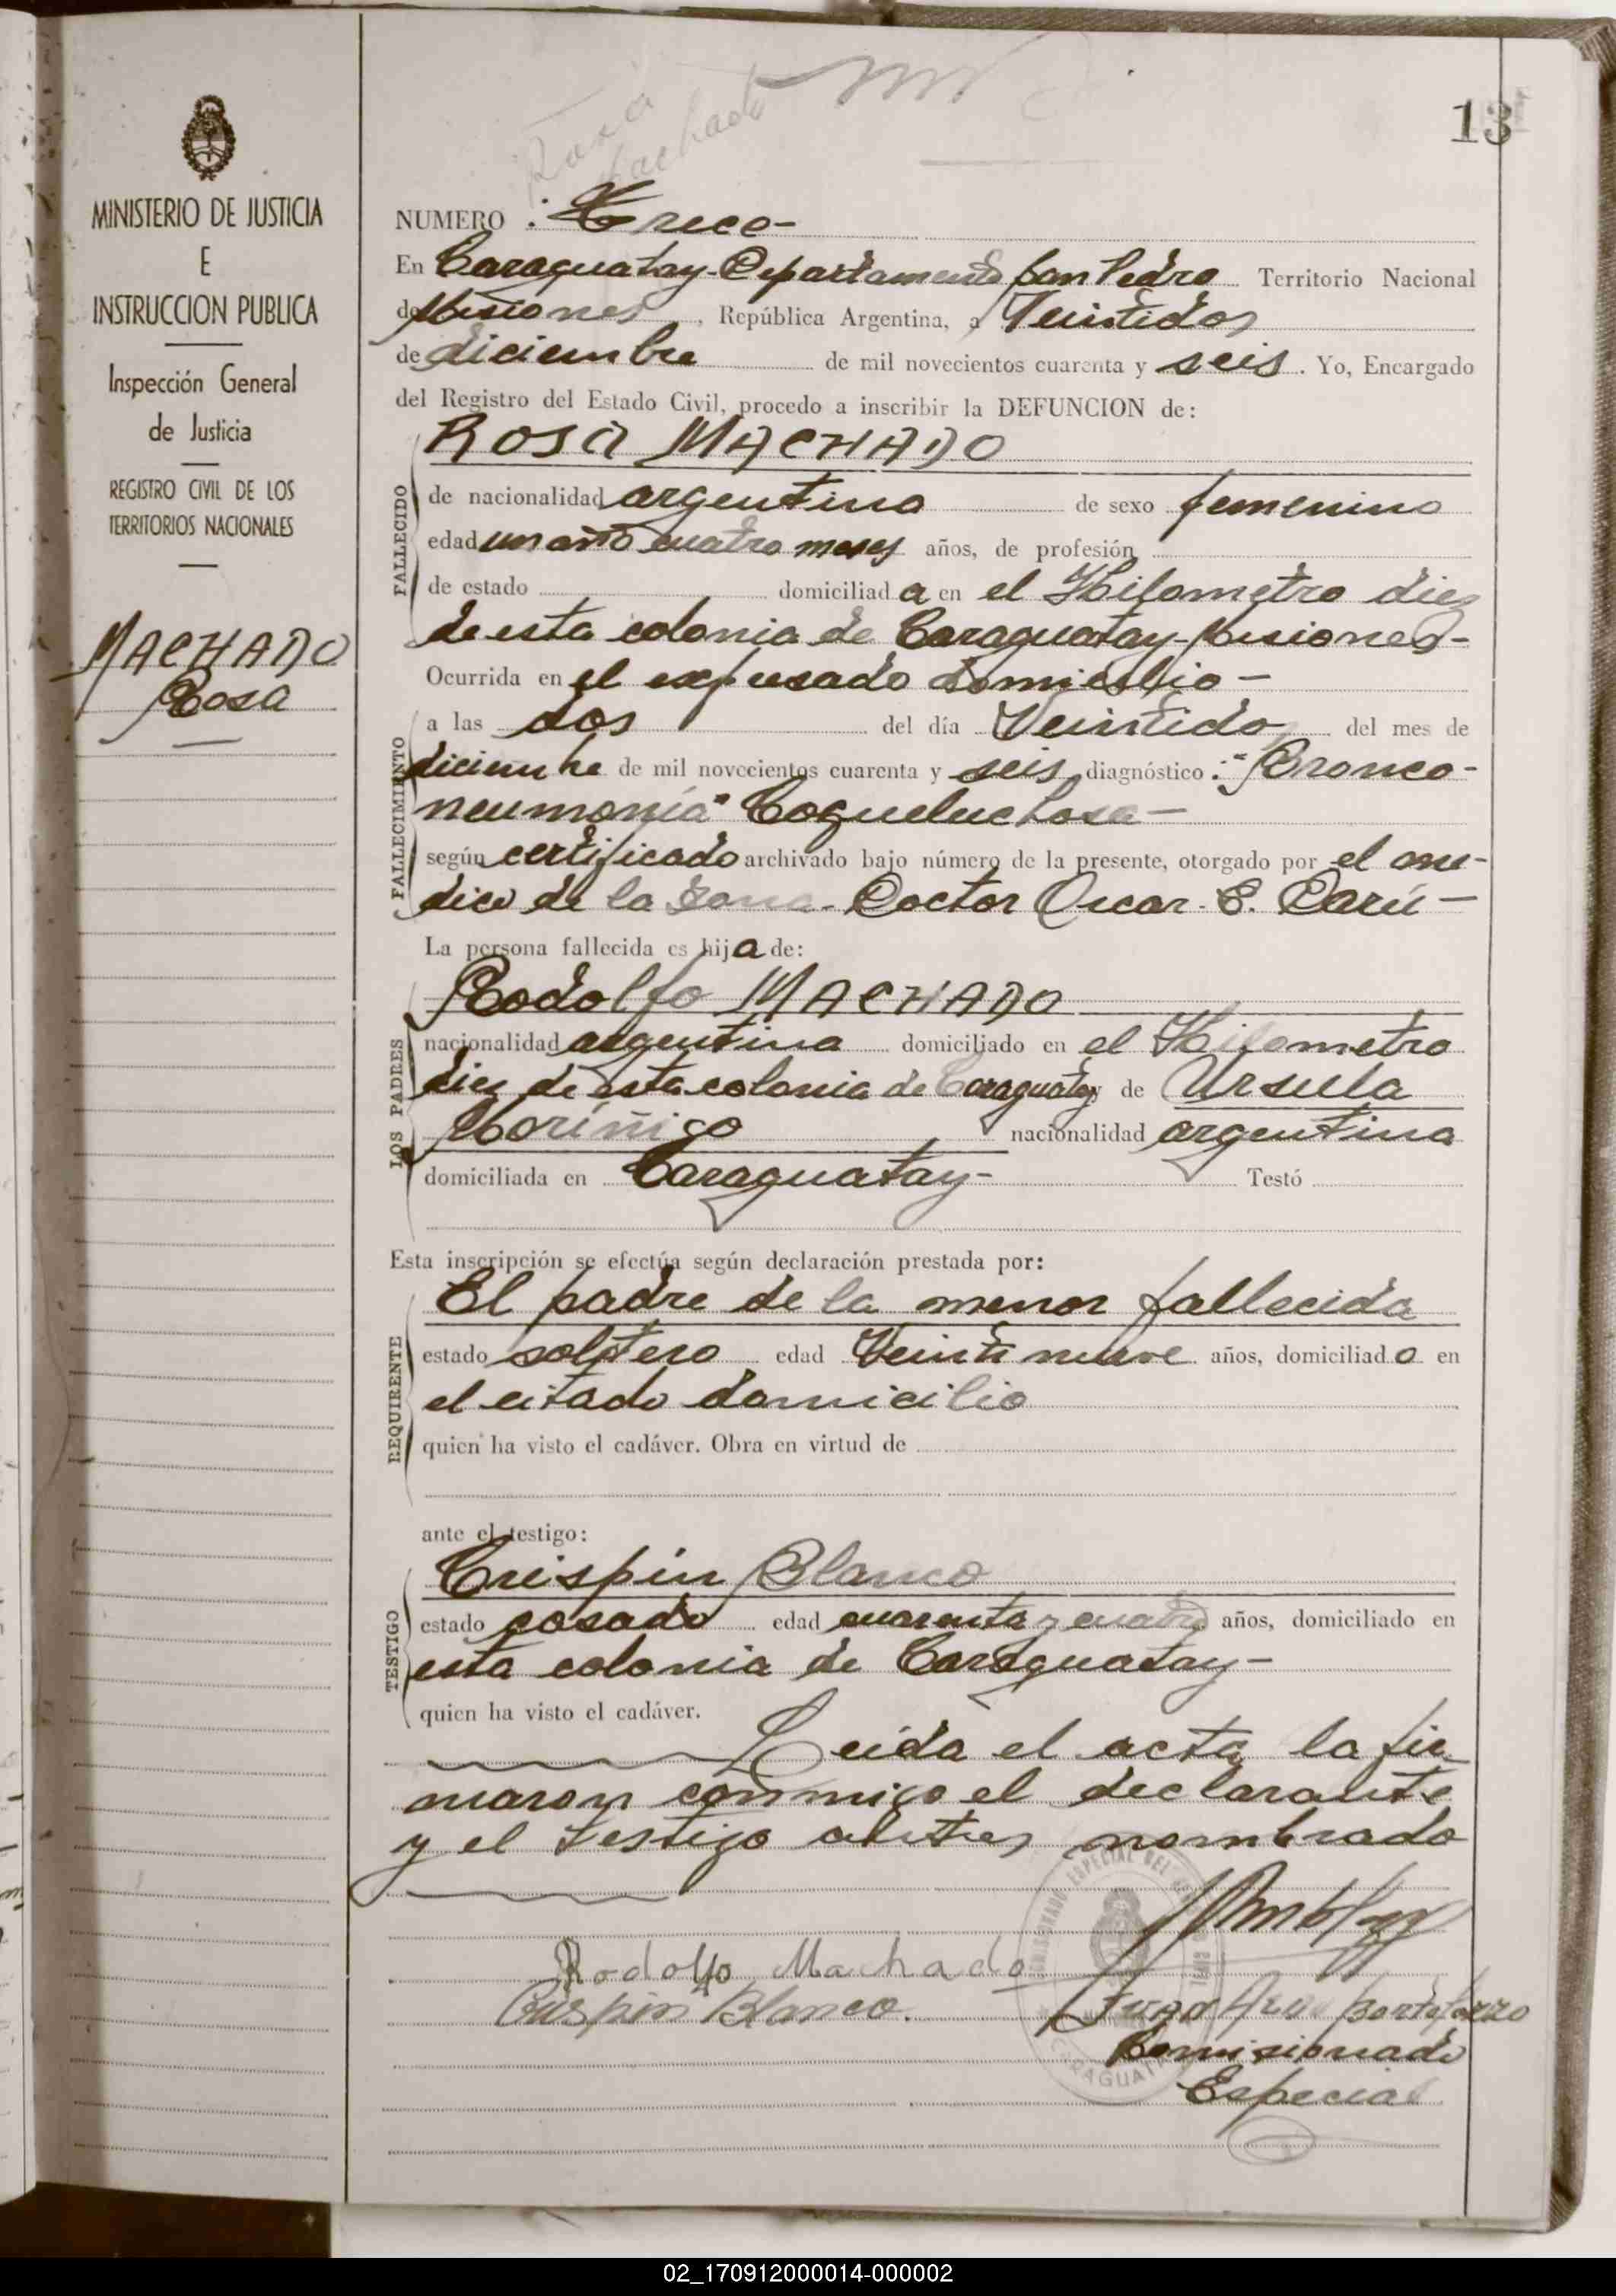 Rosa
Machado
13
MINISTERIO DE JUSTICIA
E
INSTRUCCION PUBLICA
Inspección General
de Justicia
REGISTRO CIVIL DE LOS
TERRITORIOS NACIONALES
MACHADO
Rosa
NUMERO : Trece-
En Caraguatay-Departamento San Pedro Territorio Nacional
de Misiones, República Argentina, a Veintidos
de diciembre de mil novecientos cuarenta y seis. Yo, Encargado
del Registro del Estado Civil, procedo a inscribir la DEFUNCION de:
ROSA MACHADO
FALLECIDO
de nacionalidad argentina de sexo femenino
edad un año cuatro meses años, de profesión
de estado domiciliada en el Kilometro diez
de esta colonia de Caraguatay-Misiones-
Ocurrida en el expresado domicilio-
FALLECIMIENTO
a las dos del día Veintidos del mes de
diciembre de mil novecientos cuarenta y seis diagnóstico: "Bronco-
neumonía" Coqueluchosa-
según certificado archivado bajo número de la presente, otorgado por el me-
dico de la zona-Doctor Oscar E. Darú-
La persona fallecida es hija de:
LOS PADRES
Rodolfo MACHADO
nacionalidad argentina domiciliado en el Kilometro
diez de esta colonia de Caraguatay de Ursula
Moríñigo nacionalidad argentina
domiciliada en Caraguatay- Testó
Esta inscripción se efectúa según declaración prestada por:
REQUIRENTE
El padre de la menor fallecida
estado soltero edad Veinti nueve años, domiciliado en
el citado domicilio
quien ha visto el cadáver. Obra en virtud de
ante el testigo:
TESTIGO
Crispin Blanco
estado casado edad cuarenta y cuatro años, domiciliado en
esta colonia de Caraguatay-
quien ha visto el cadáver.
Leída el acta, la fir
maron conmigo el declarante
y el testigo antes nombrado
Rodolfo Machado
Crispin Blanco.
Juan
Comisionado
Especial
02_170912000014-000002